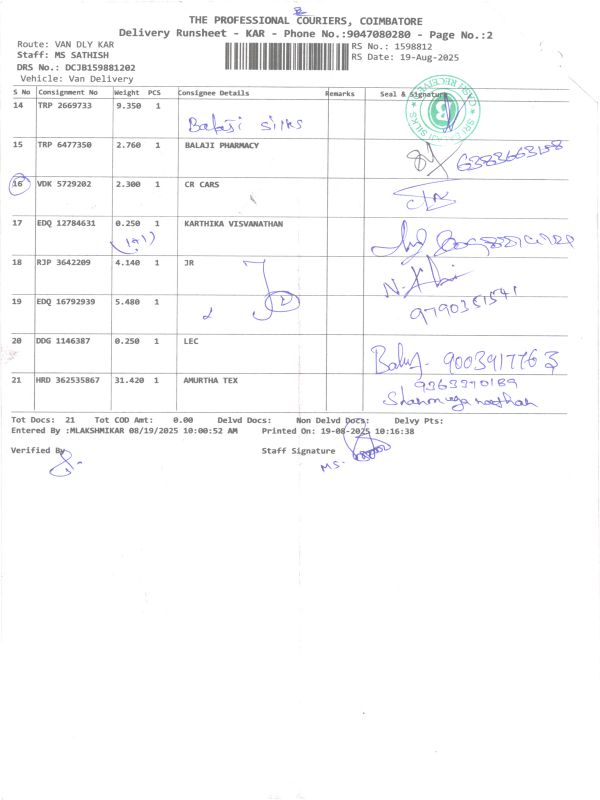 THE PROFESSIONAL COURIERS, COIMBATORE
Delivery Runsheet - KAR - Phone No.:9047080280 - Page No.:2
Route: VAN DLY KAR
Staff: MS SATHISH
DRS No.: DCJB159881202
Vehicle: Van Delivery
RS No.: 1598812
RS Date: 19-Aug-2025
S No Consignment No Weight PCS Consignee Details Remarks Seal & Signature
14 TRP 2669733 9.350 1
Balaji silks
15 TRP 6477350 2.760 1 BALAJI PHARMACY
6383663158
16 VDK 5729202 2.300 1 CR CARS
17 EDQ 12784631 0.250 1 KARTHIKA VISVANATHAN
18 RJP 3642209 4.140 1 JR
19 EDQ 16792939 5.480 1
9790351541
20 DDG 1146387 0.250 1 LEC
9003917763
21 HRD 362535867 31.420 1 AMURTHA TEX
9363370189
Tot Docs: 21 Tot COD Amt: 0.00 Delvd Docs: Non Delvd Docs: Delvy Pts:
Entered By :MLAKSHMIKAR 08/19/2025 10:00:52 AM Printed On: 19-08-2025 10:16:38
Verified By Staff Signature
MS.